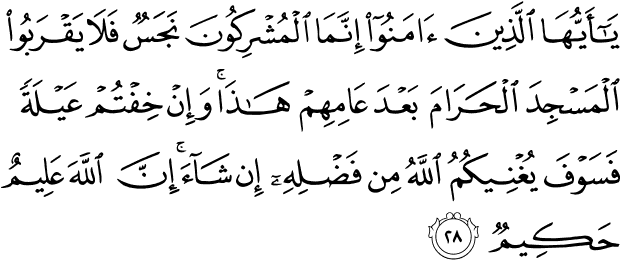 يَٰٓأَيُّهَا ٱلَّذِينَ ءَامَنُوٓا۟ إِنَّمَا ٱلْمُشْرِكُونَ نَجَسٌ فَلَا يَقْرَبُوا۟
ٱلْمَسْجِدَ ٱلْحَرَامَ بَعْدَ عَامِهِمْ هَٰذَا ۚ وَإِنْ خِفْتُمْ عَيْلَةً
فَسَوْفَ يُغْنِيكُمُ ٱللَّهُ مِن فَضْلِهِۦٓ إِن شَآءَ ۚ إِنَّ ٱللَّهَ عَلِيمٌ
حَكِيمٌ ٢٨